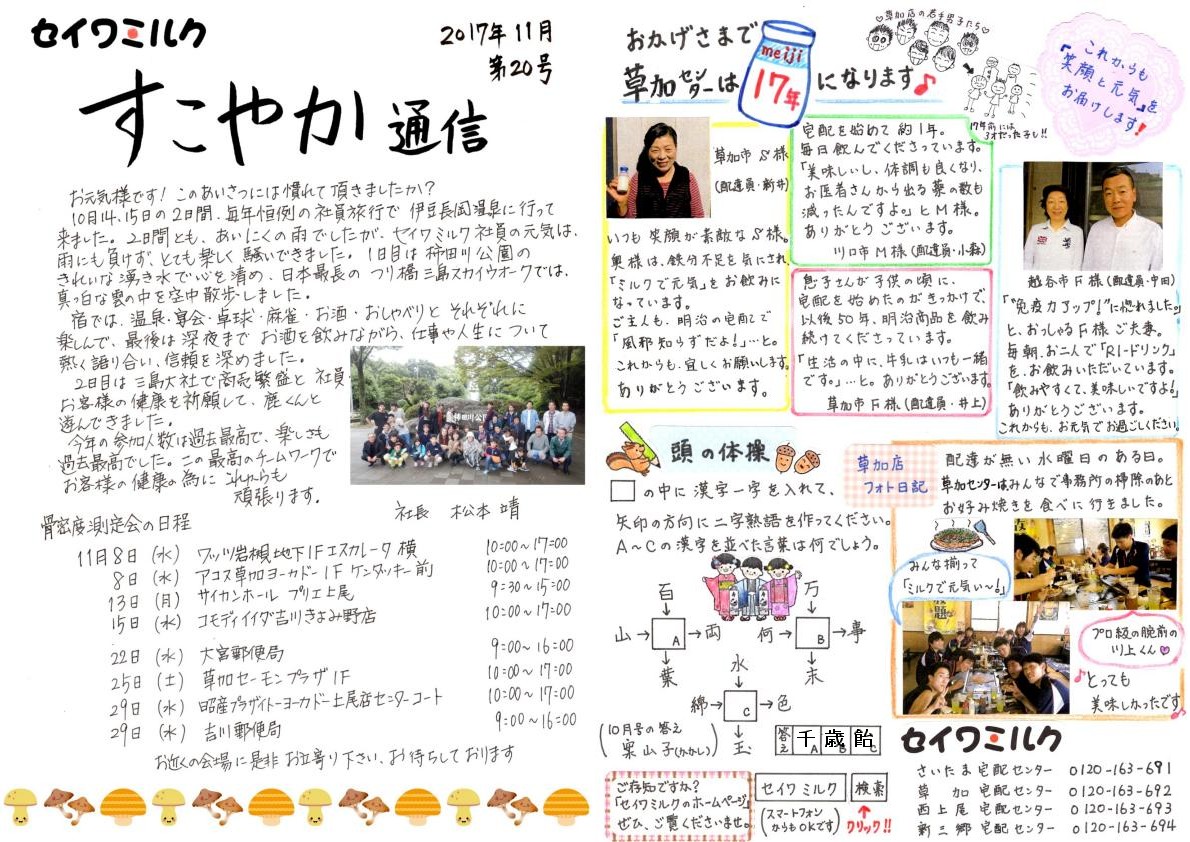 セイワミルク
2017年11月
第20号
すこやか通信
お元気様です！このあいさつには慣れて頂きましたか？
10月14、15日の2日間、毎年恒例の社員旅行で伊豆長岡温泉に行って
来ました。2日間とも、あいにくの雨でしたが、セイワミルク社員の元気は、
雨にも負けず、とても楽しく騒いできました。1日目は柿田川公園の
きれいな湧き水で心を清め、日本最長のつり橋三島スカイウオークでは、
真っ白な雲の中を空中散歩しました。
宿では、温泉・宴会・卓球・麻雀・お酒・おしゃべりとそれぞれに
楽しんで、最後は深夜までお酒を飲みながら、仕事や人生について
熱く語り合い、信頼を深めました。
2日目は三島大社で商売繁盛と社員
お客様の健康を祈願して、鹿くんと
遊んできました。
今年の参加人数は過去最高で、楽しさも
過去最高でした。この最高のチームワークで
お客様の健康の為にこれからも
頑張ります。
社長 松本 靖
柿田川公園
骨密度測定会の日程
11月8日（水） ワッツ岩槻地下1Fエスカレータ横 10:00〜17:00
8日（水） アコス草加ヨーカドー1Fケンタッキー前 10:00〜17:00
13日（月） サイカンホール プリエ上尾 9:30〜15:00
15日（水） コモディイイダ吉川きよみ野店 10:00〜17:00
22日（水） 大宮郵便局 9:00〜16:00
25日（土） 草加セーモンプラザ1F 10:00〜17:00
29日（水） 昭産プラザイトーヨーカドー上尾店センターコート 10:00〜17:00
29日（水） 吉川郵便局 9:00〜16:00
お近くの会場に是非お立寄り下さい、お待ちしております
おかげさまで
草加センターは meiji 17年 になります♪
♡草加店の若手男子たち♡
17年前には
3才だった子も!!
これからも
「笑顔と元気」を
お届けします！
草加市 S様
（配達員・新井）
いつも笑顔が素敵なS様。
奥様は、鉄分不足を気にされ、
「ミルクで元気」をお飲みに
なっています。
ご主人も、明治の宅配で
「風邪知らずだよ！」…と。
これからも、宜しくお願いします。
ありがとうございます。
宅配を始めて約1年。
毎日飲んでくださっています。
「美味しいし、体調も良くなり、
お医者さんから出る薬の数も
減ったんですよ。」とM様。
ありがとうございます。
川口市M様（配達員・小森）
息子さんが子供の頃に、
宅配を始めたのがきっかけで、
以後50年、明治商品を飲み
続けてくださっています。
「生活の中に、牛乳はいつも一緒
です。」…と。ありがとうございます。
草加市F様（配達員・井上）
越谷市F様（配達員・中田）
"免疫力アップ！"に惚れました。
と、おっしゃるF様ご夫妻。
毎朝、お二人で「R1-ドリンク」
を、お飲みいただいています。
「飲みやすくて、美味しいですよ！」
ありがとうございます。
これからも、お元気でお過ごしください。
頭の体操
□の中に漢字一字を入れて、
矢印の方向に二字熟語を作ってください。
A〜Cの漢字を並べた言葉は何でしょう。
百 万
山→A→両 何→B→事
葉 水 末
綿→C→色
玉
10月号の答え
案山子（かかし）
答え 千 歳 飴
A B C
草加店
フォト日記
配達が無い水曜日のある日。
草加センターはみんなで事務所の掃除のあと
お好み焼きを食べに行きました。
みんな揃って
「ミルクで元気い〜！」
放題
プロ級の腕前の
川上くん♡
♪とっても
美味しかったです♪
ご存知ですか？
「セイワミルクのホームページ」
ぜひ、ご覧くださいませ。
セイワ ミルク 検索
（スマートフォンからもOKです）
クリック!!
セイワミルク
さいたま宅配センター 0120-163-691
草 加 宅配センター 0120-163-692
西上尾 宅配センター 0120-163-693
新三郷 宅配センター 0120-163-694